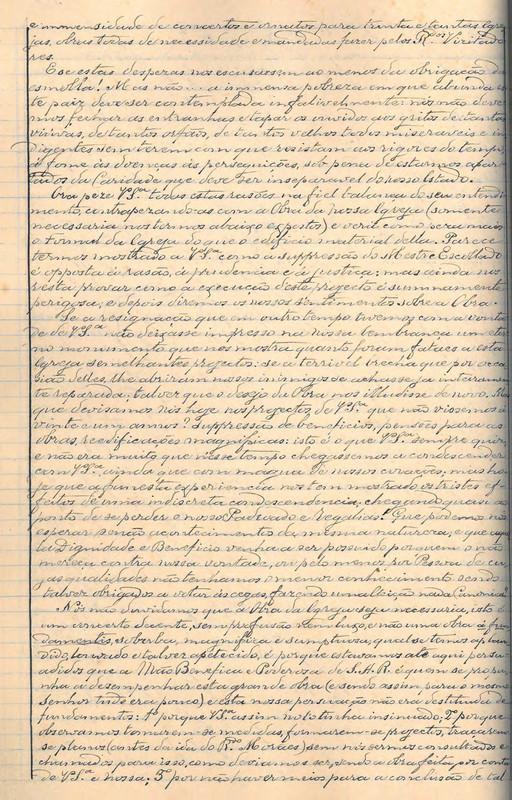 e immensidade de concertos e ornatos para trinta e tantas Igre
jas, obras todas de necessidade e mandadas fazer pelos R.dos Visitado
res.
E se estas despezas nos escusassem ao menos da obrigação da
esmolla! Mas não... a immensa pobreza em que abunda es
te paiz deve ser contemplada infalivelmente: nós não deve
mos fechar as entranhas e tapar os ouvidos aos gritos de tantas
viuvas, de tantos orfãos, de tantos velhos todos miseraveis e in
digentes sem terem com que resistam aos rigores do tempo,
á fome ás doenças ás perseguições, sob pena de estarmos apar
tados da Caridade que deve ser inseparavel do nosso Estado.
Ora peze V.S.ria todas estas rasões na fiel balança do seu entendi
mento, contrapezando-as com a Obra da nossa Igreja (somente
necessaria nos termos abaixo expostos) e verá como pera mais
o formal da Igreja do que o edificio material della. Parece
termos mostrado a V.S.ria como a suppressão do Mestre Escollado
é opposta á rasão, á prudencia e á justiça; mas ainda nos
resta provar como a execução deste projecto é summamente
perigosa, e depois diremos os nossos sentimentos sobre a Obra.
Se a resignação que em outro tempo tivemos com a vonta
de de V.S.a não deixasse impresso na nossa lembrança um eter
no monumento que nos mostra quanto foram fataes a esta
Igreja semelhantes projectos: se a terrivel brecha que por occa
sião delles, lhe abriram nossos inimigos se achasse ja inteiramen
te reparada: talvez que o desejo da Obra nos illudisse de novo. Mas
que devisamos nós hoje nos projectos de V.S.a que não vissemos a
vinte e um annos? Suppressão de beneficios, pensões para as
obras, reedificações magnificas: isto é o que V.S.a sempre quiz,
e não era muito que nesse tempo chegassemos a condescender
com V.S.a ainda que com mágua de nossos corações; mas ho
je que a funesta experiencia nos tem mostrado os tristes ef
feitos de uma indiscreta condescendencia, chegando quasi a
ponto de se perder o nosso Padroado e Regalias! Que podemos nós
esperar senão acontecimentos da mesma natureza, e que aquel
la Dignidade e Beneficio venha a ser possuido por quem o não
mereça contra nossa vontade, ou pelo menos por Pessoa de cu
jas qualidades não tenhamos o menor conhecimento sendo
talvez obrigados a votar ás cegas, fazendo uma eleição nada Canonica?
Nós não duvidamos que a Obra da Igreja seja necessaria, isto é
um concerto decente, sem profusão nem luxo, e não uma obra á fun
damentos, soberba, magnifica e sumptuosa, qual se temos aplau
dido, louvado e talvez apetecido, é porque estavamos até aqui persu
adidos que a Mão Benefica e Poderoza de S.A.R. é quem se propu
nha a desempenhar esta grande obra (e sendo assim para o mesmo
Senhor tudo era pouco) e esta nossa persuação não era destituida de
fundamentos: 1.º porque V.S.a assim nol-o tinha insinuado; 2.º porque
observamos tomarem-se medidas, formarem-se projectos, traçarem
se planos (antes da ida do R.do Moraes) sem nós sermos consultados e
chamados para isso, como deviamos ser, sendo a obra feita por conta
de V.S.a e nossa; 3.º por não haver meios para a conclusão de tal